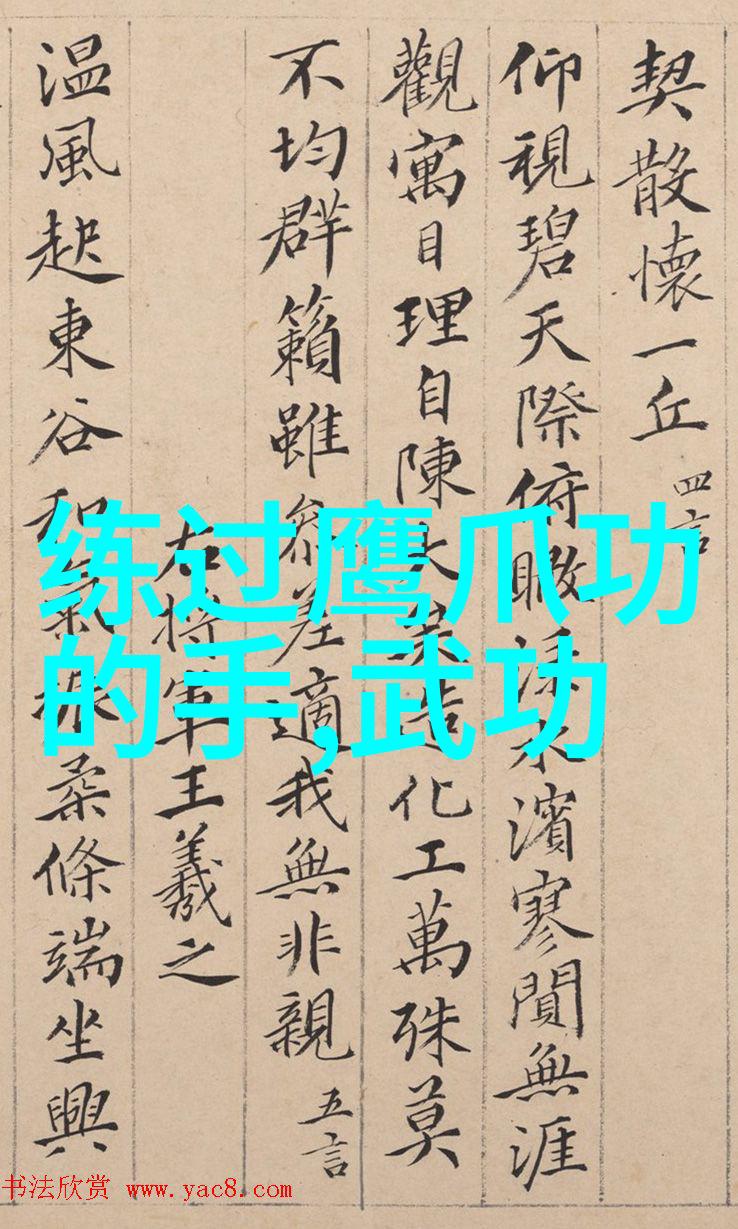 契散懷一丘 四言
仰視碧天際俯瞰淥水濱寥閴無涯
觀寓目理自陳大矣造化工萬殊莫
不均群籟雖參差適我無非親 五言
右將軍王羲之
温風起東谷和氣振柔條端坐興
练过鹰爪功
的手,武功
书法欣赏 www.yac8.com